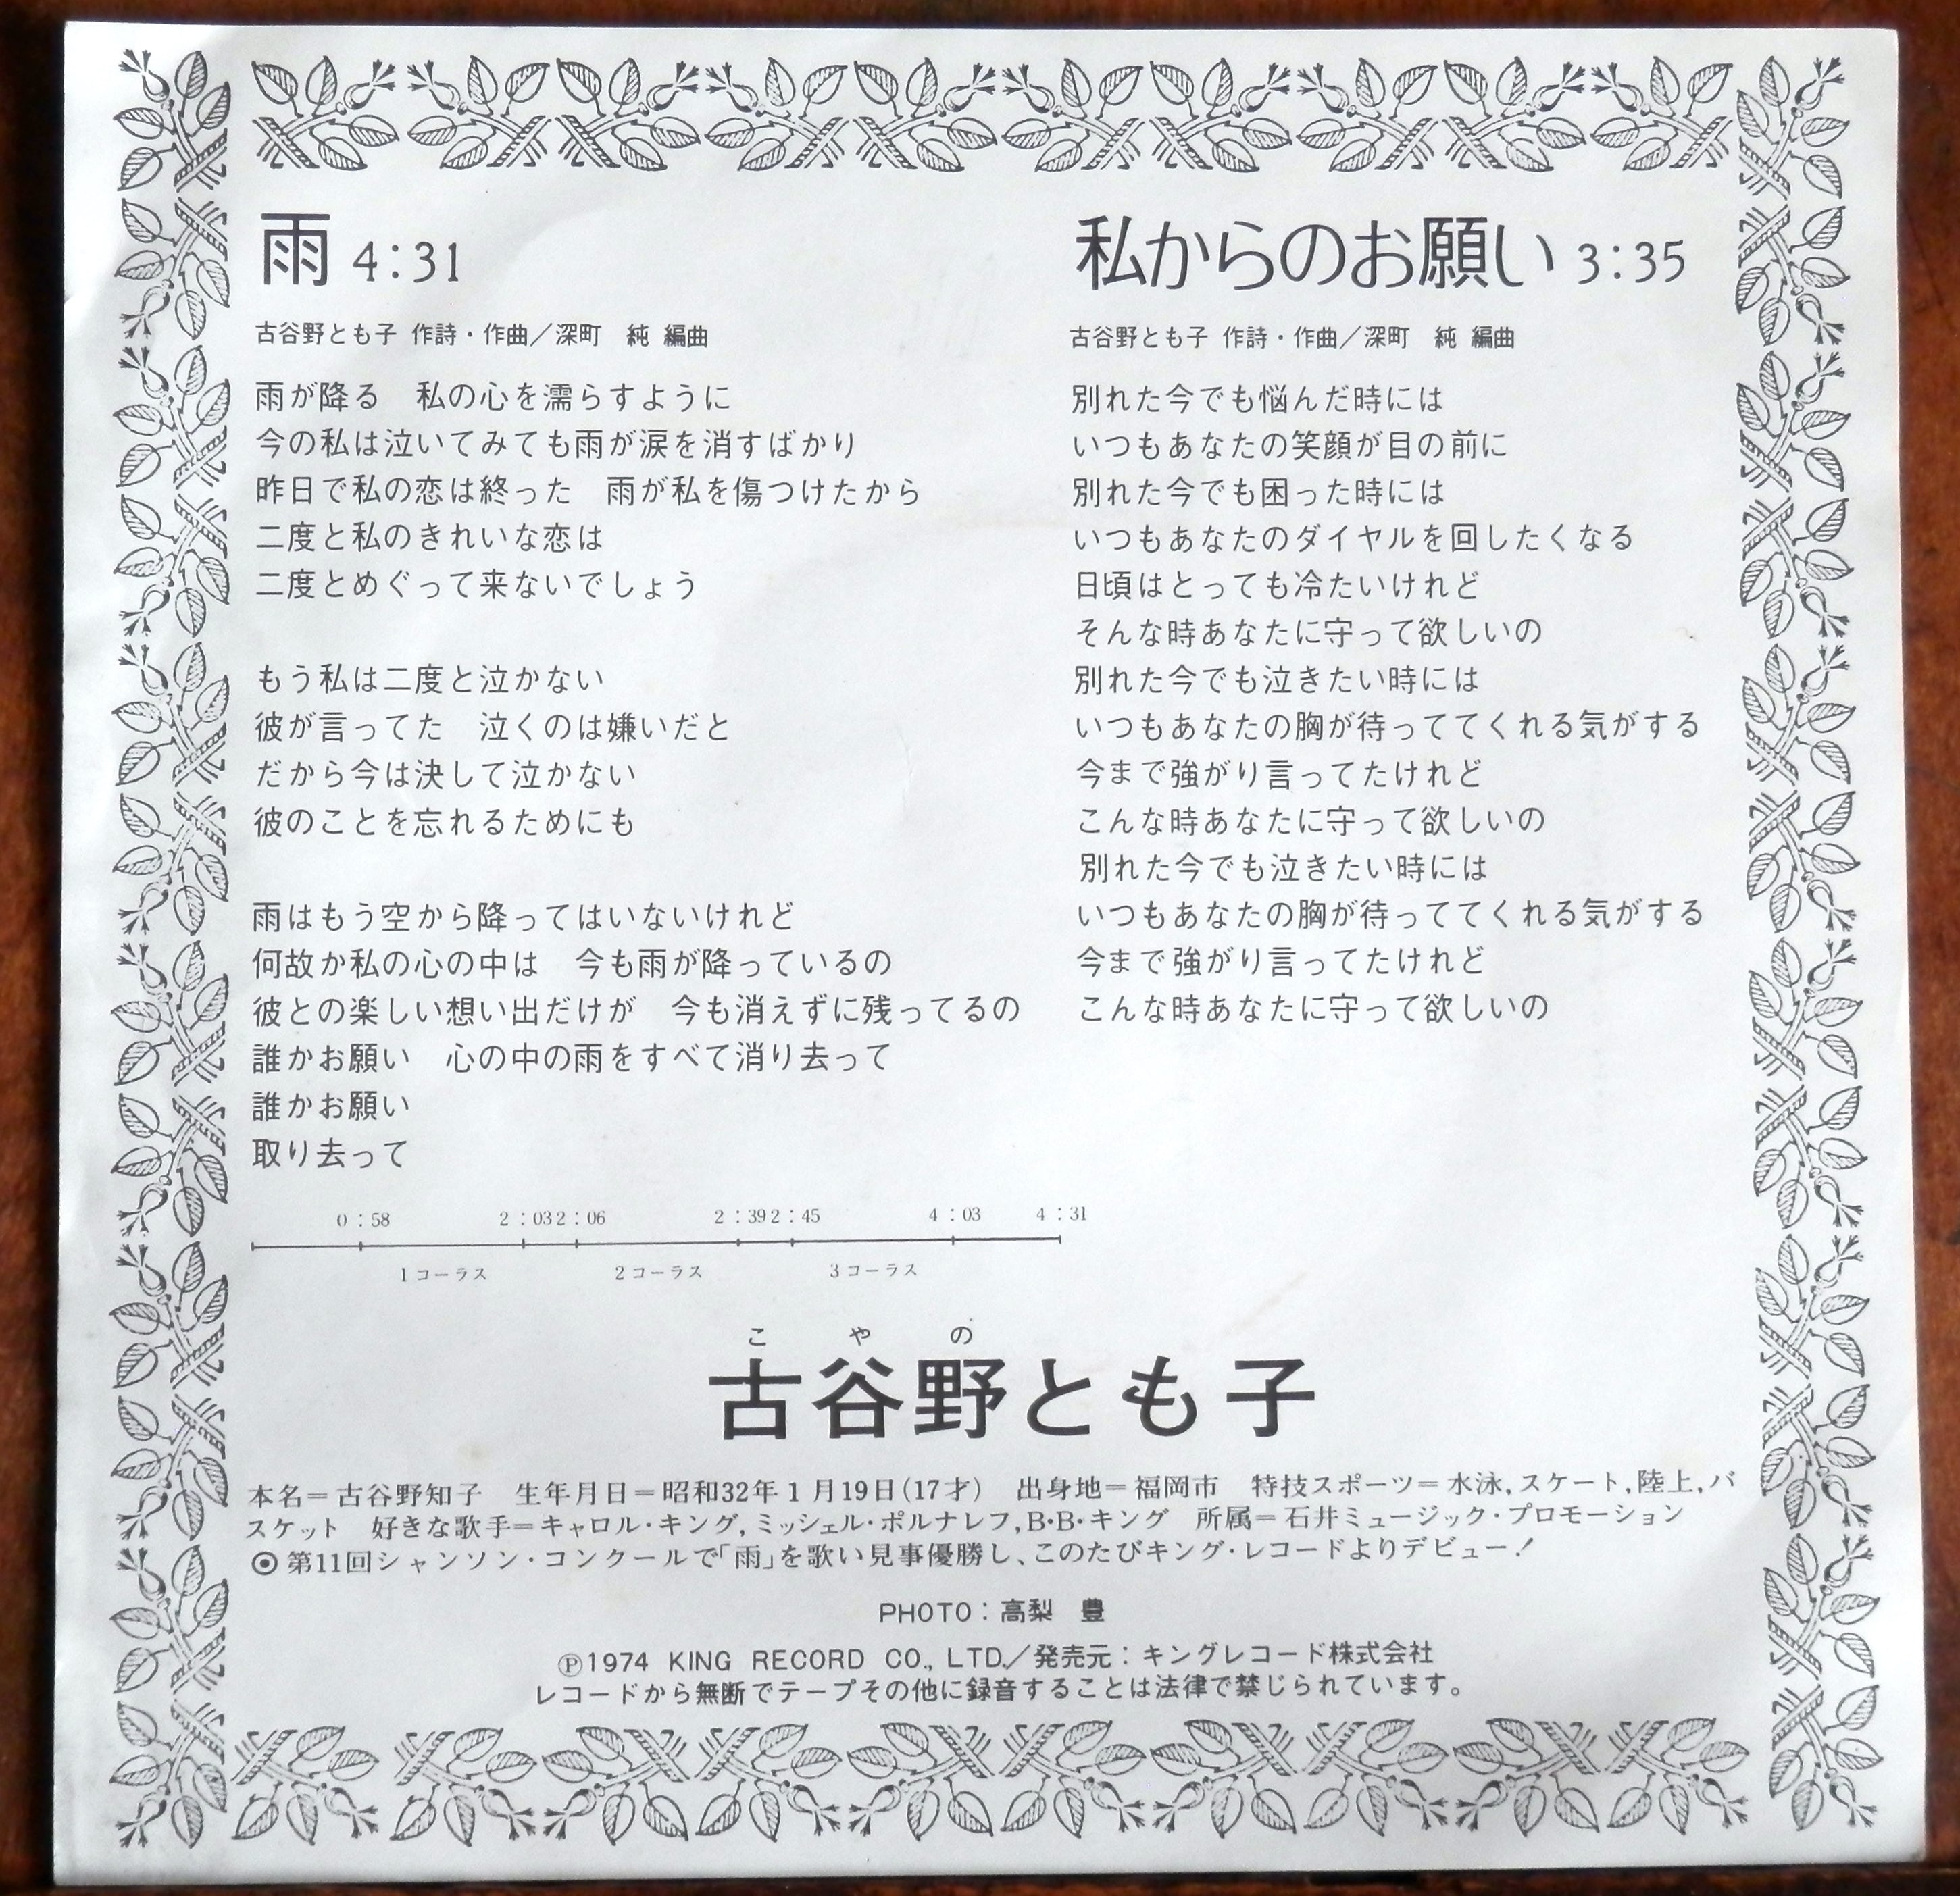 雨 4：31
古谷野とも子 作詩・作曲／深町　純 編曲
雨が降る　私の心を濡らすように
今の私は泣いてみても雨が涙を消すばかり
昨日で私の恋は終った　雨が私を傷つけたから
二度と私のきれいな恋は
二度とめぐって来ないでしょう
もう私は二度と泣かない
彼が言ってた　泣くのは嫌いだと
だから今は決して泣かない
彼のことを忘れるためにも
雨はもう空から降ってはいないけれど
何故か私の心の中は　今も雨が降っているの
彼との楽しい想い出だけが　今も消えずに残ってるの
誰かお願い　心の中の雨をすべて消り去って
誰かお願い
取り去って
0：58　2：03 2：06　2：39 2：45　4：03　4：31
1コーラス　2コーラス　3コーラス
私からのお願い 3：35
古谷野とも子 作詩・作曲／深町　純 編曲
別れた今でも悩んだ時には
いつもあなたの笑顔が目の前に
別れた今でも困った時には
いつもあなたのダイヤルを回したくなる
日頃はとっても冷たいけれど
そんな時あなたに守って欲しいの
別れた今でも泣きたい時には
いつもあなたの胸が待っててくれる気がする
今まで強がり言ってたけれど
こんな時あなたに守って欲しいの
別れた今でも泣きたい時には
いつもあなたの胸が待っててくれる気がする
今まで強がり言ってたけれど
こんな時あなたに守って欲しいの
こ　や　の
古谷野とも子
本名＝古谷野知子　生年月日＝昭和32年1月19日(17才)　出身地＝福岡市　特技スポーツ＝水泳,スケート,陸上,バ
スケット　好きな歌手＝キャロル・キング,ミッシェル・ポルナレフ,B・B・キング　所属＝石井ミュージック・プロモーション
◉第11回シャンソン・コンクールで「雨」を歌い見事優勝し、このたびキング・レコードよりデビュー！
PHOTO：高梨　豊
Ⓟ1974 KING RECORD CO., LTD.／発売元：キングレコード株式会社
レコードから無断でテープその他に録音することは法律で禁じられています。